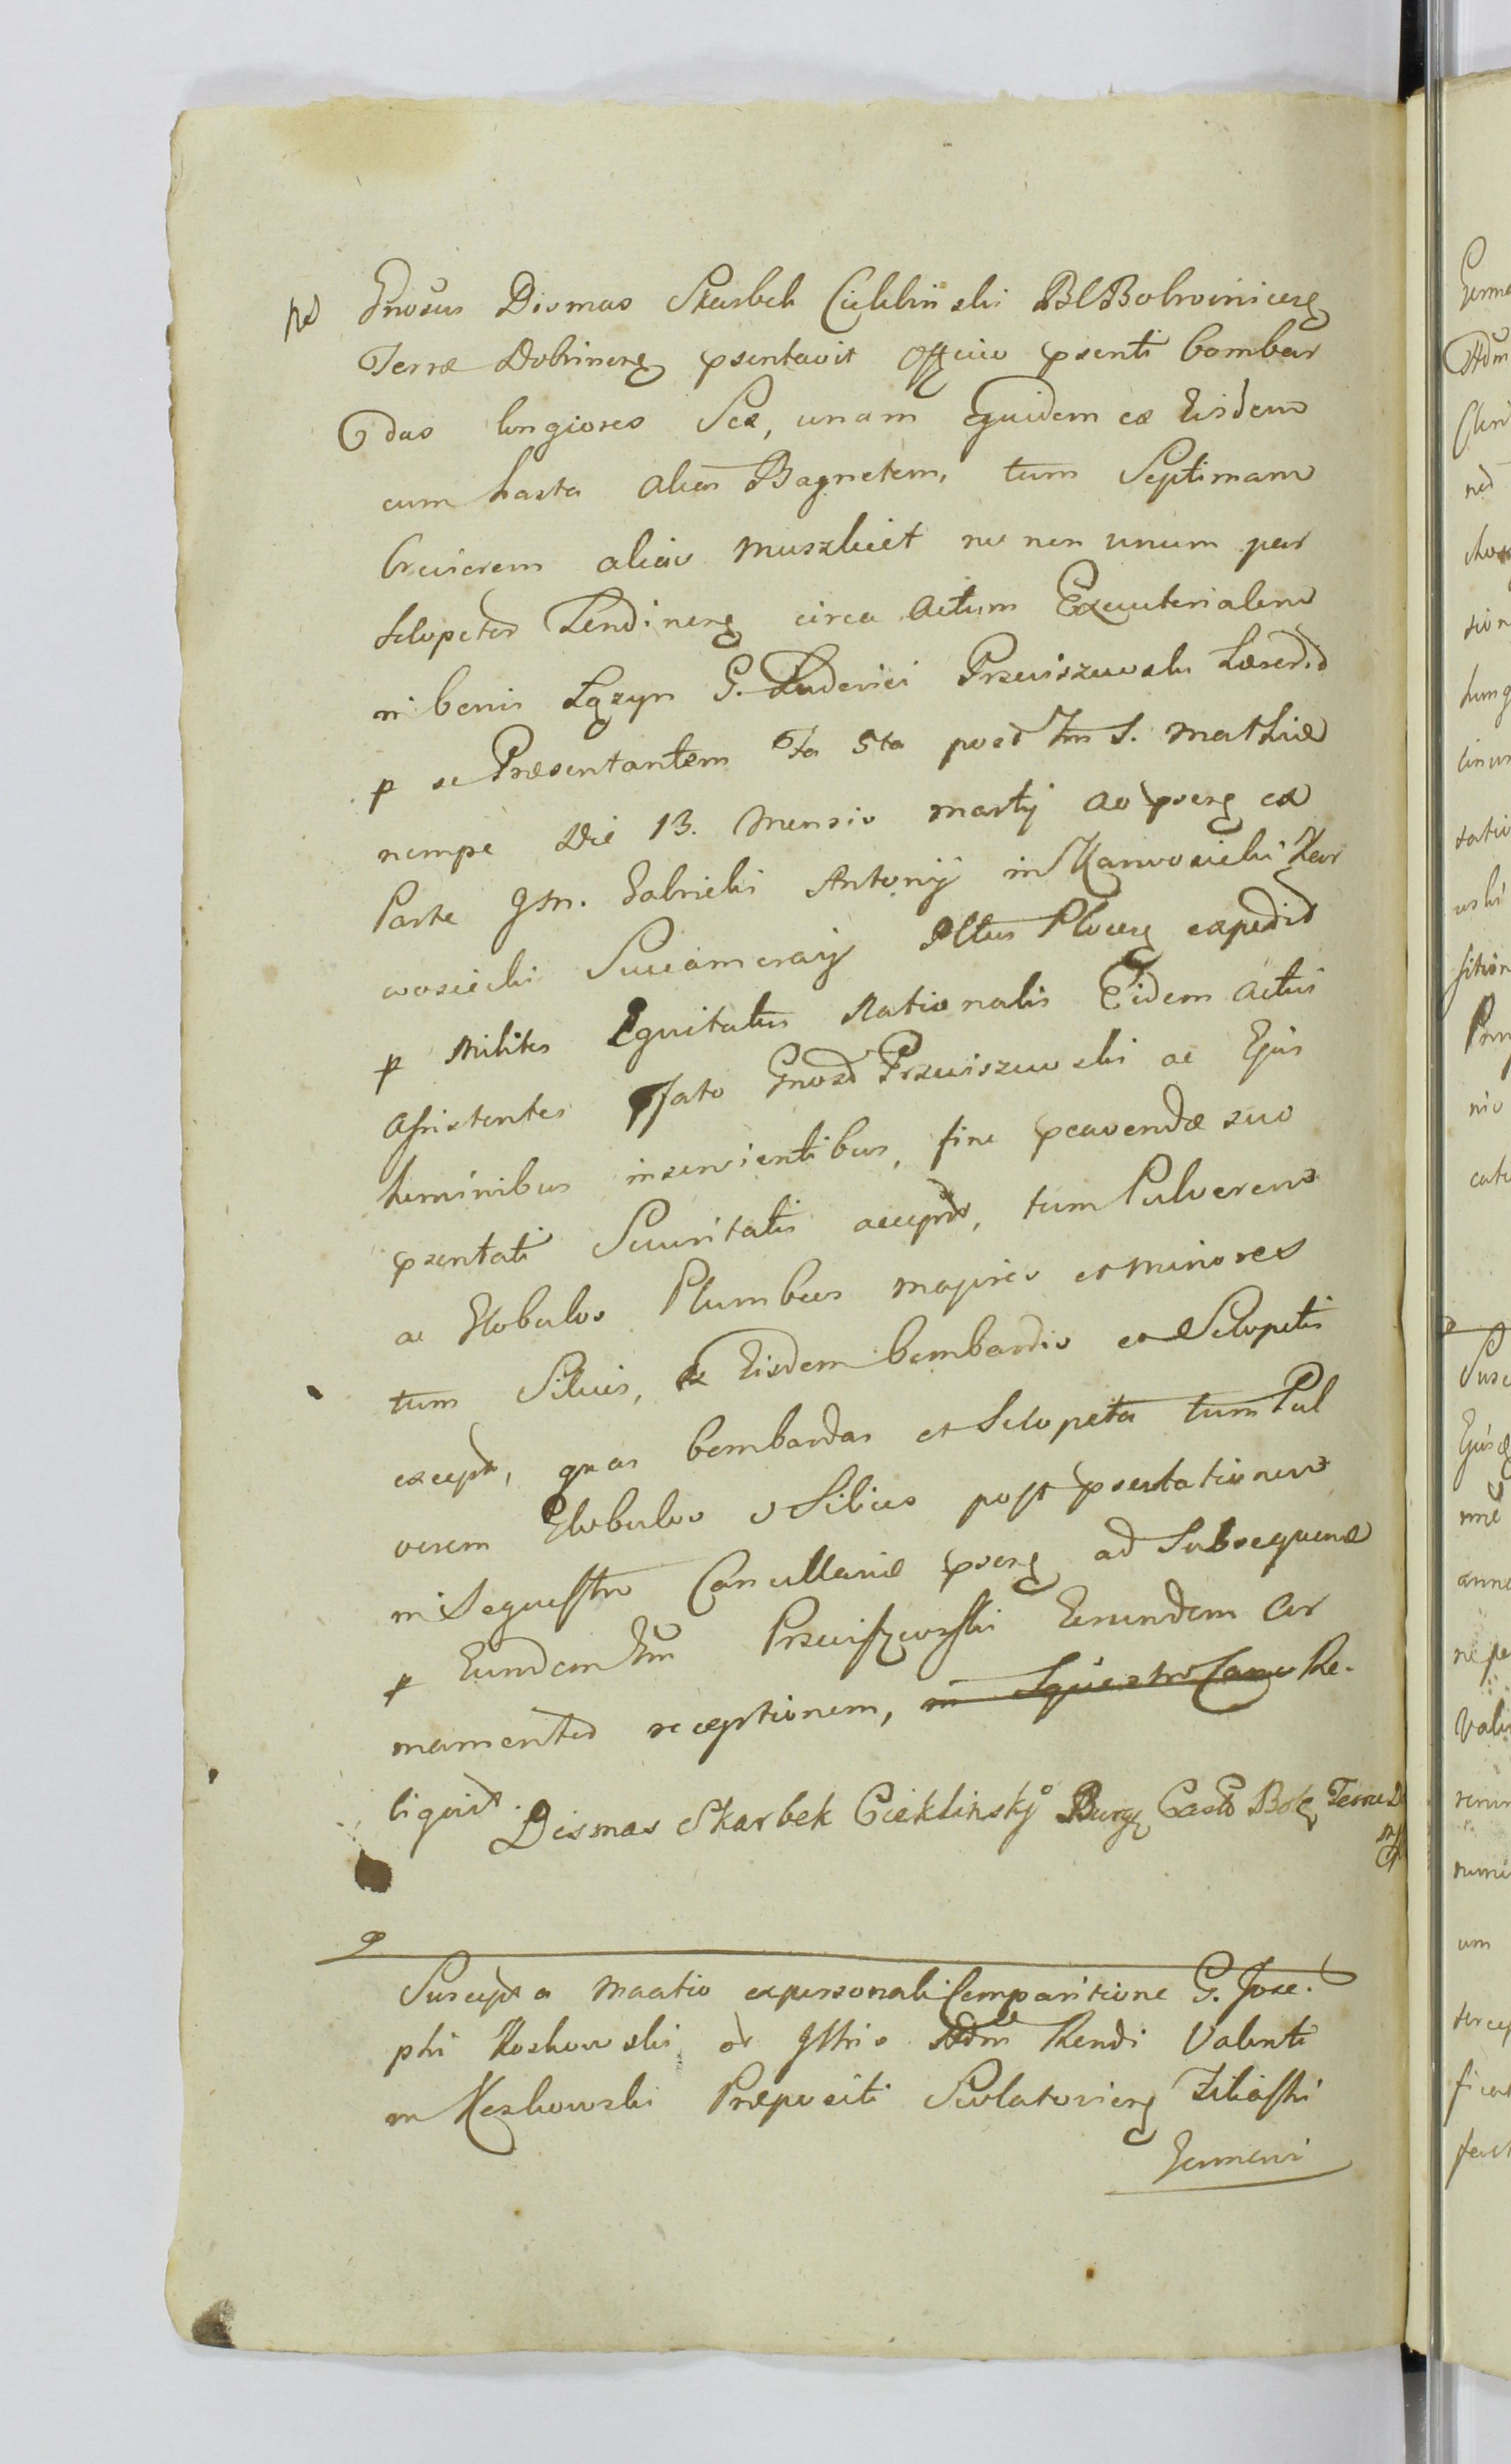 Gnosus Dismas Skarbek Cieklinski BCBobrovnicens
Terræ Dobrinens psentavit Officio psenti bombar
das longiores Sex, unam Equidem ex Eisdem
cum hasta alias Bagnetem, tum Septimam
breviorem alias muszkiet nec non unum par
sclopetor circa Actum Executerialem
in bonis Łązyn G. Ludovici Przeciszewski hæred
p se Præsentantem Fa 5ta post Fm S. Mathiæ
nempe Die 13. Mensis Martÿ ao psens ex
Parte Gabrielis Antonÿ in Karwosieki Kar
wosiecki Succamerarÿ Plocens expedit
p Milites Equitatus Nationalis Eidem Actui
Assistentes Fato Gnoso Przeciszewski ac Ejus
hominibus inservientibus, fine pcavendæ suo
psentati Securitatis accept, tum Pulverem
ac Globulos Plumbeos majores et minores
tum Silices, ex Eisdem bombardis et Sclopetis
except, quas bombardas et Sclopeta tum Pul
verem Globulos & Silices post psentationem
in Sequestro Cancellariæ psens ad Subsequenæ
p Eundem Przeciszewski Eorundem Ar
mamentor receptionem, in Sequestro Canc Re-
liquit.
Dismas Skarbek Cieklinsky Burg Castr Bobr Terræ D
mp
Suscepta Maatio ex personali Comparitione G. Jose-
phi Koskowski et Illris Adm Rendi Valenti
ni Koskowski Præpositi Sculatoviens
Germani